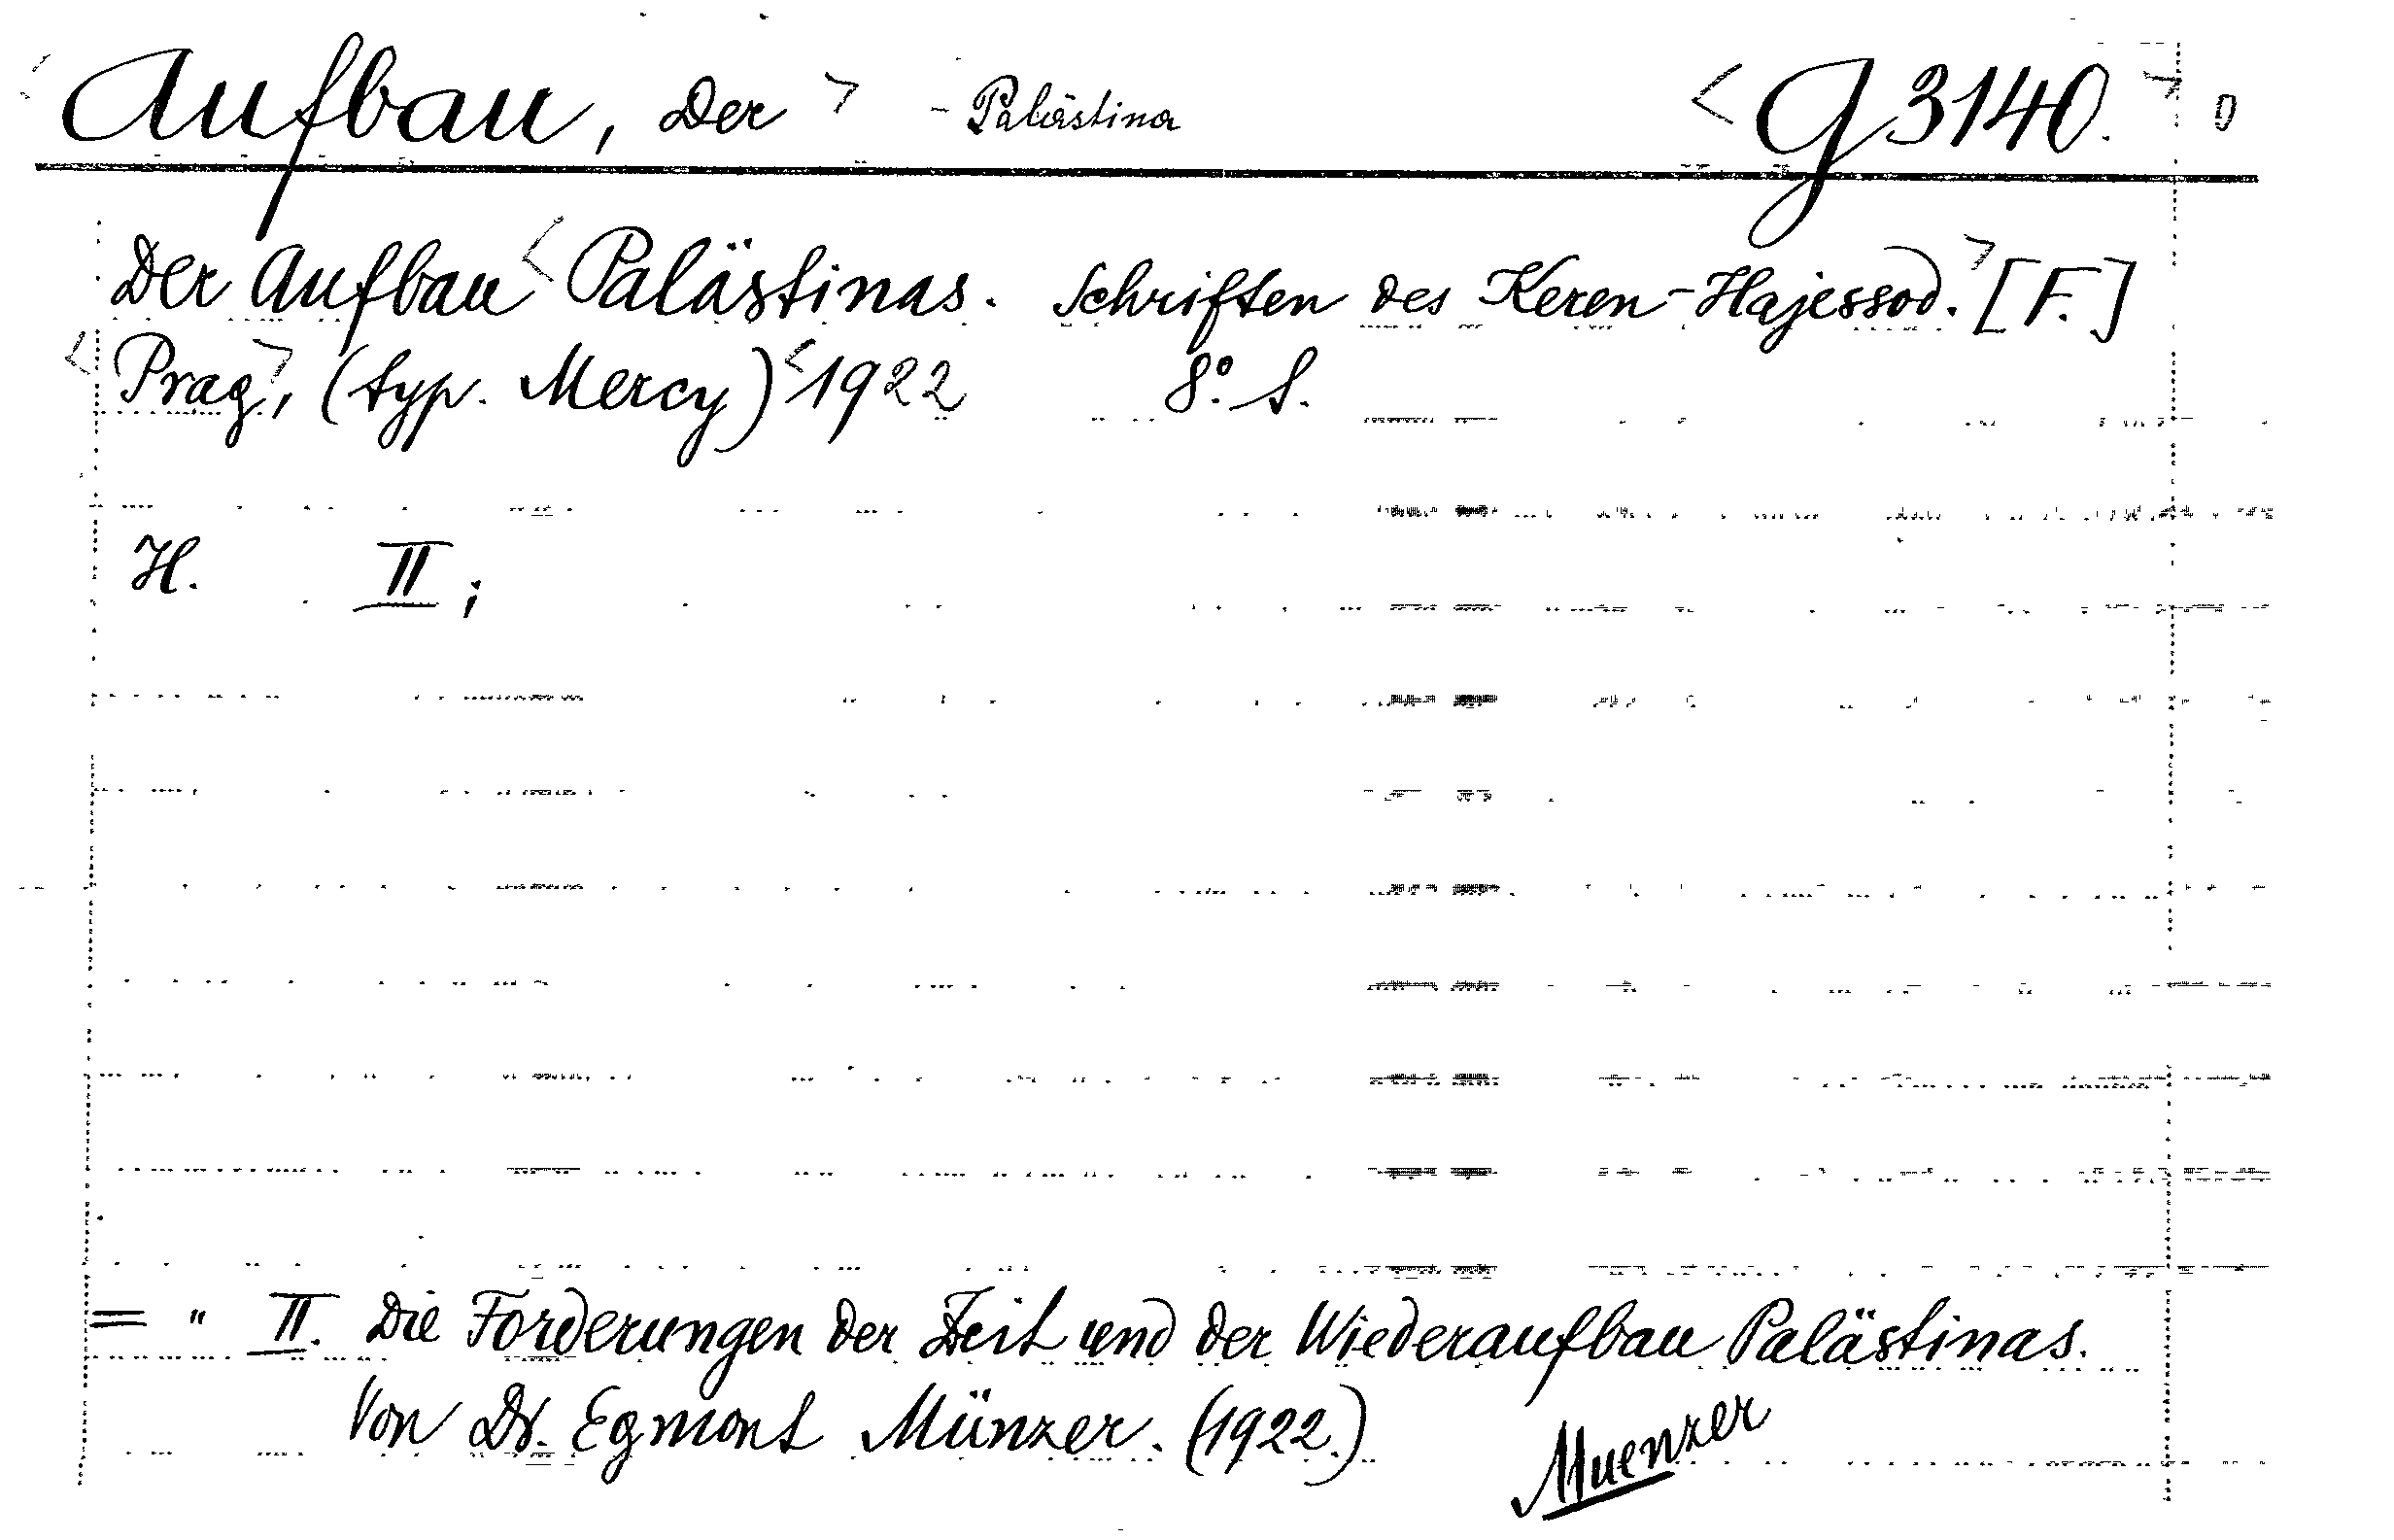 <Aufbau, Der> - Palästina <G 3140.> 0
Der Aufbau <Palästinas. Schriften des Keren-Hajessod.> [F.]
<Prag>, (typ. Mercy) <1922 8º. S.
H. II;
= " II. Die Forderungen der Zeit und der Wiederaufbau Palästinas.
Von Dr. Egmont Münzer. (1922.) Muenzer